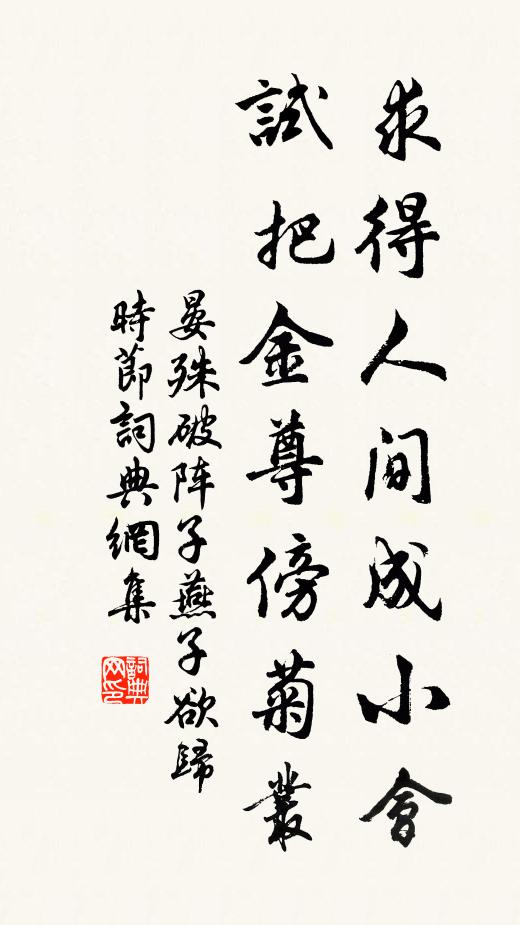 求得人间成小會
試把金尊傍菊叢
晏殊破阵子燕子欲歸
時節詞典網集
詞典网印